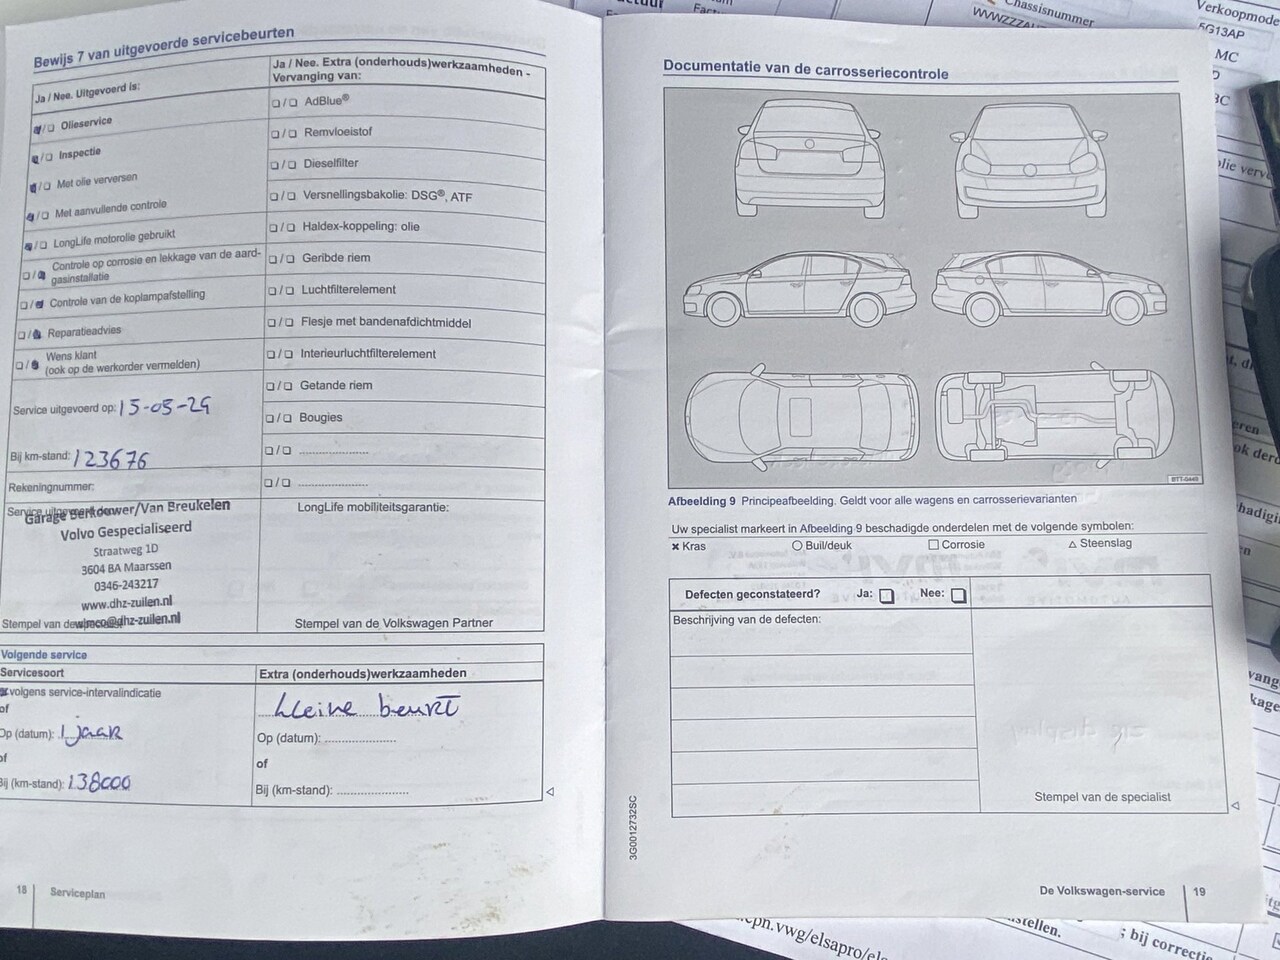 Bewijs 7 van uitgevoerde servicebeurten
Ja / Nee. Uitgevoerd is:
☐/☐ Olieservice
☐/☐ Inspectie
☐/☐ Met olie verversen
☐/☐ Met aanvullende controle
☐/☐ LongLife motorolie gebruikt
☐/☐ Controle op corrosie en lekkage van de aard-
gasinstallatie
☐/☐ Controle van de koplampafstelling
☐/☐ Reparatieadvies
☐/☐ Wens klant
(ook op de werkorder vermelden)
Service uitgevoerd op: 15-05-24
Bij km-stand: 123676
Rekeningnummer:
Garage Berkdouwer/Van Breukelen
Volvo Gespecialiseerd
Straatweg 1D
3604 BA Maarssen
0346-243217
www.dhz-zuilen.nl
wimco@dhz-zuilen.nl
Stempel van de
Ja / Nee. Extra (onderhouds)werkzaamheden -
Vervanging van:
☐/☐ AdBlue®
☐/☐ Remvloeistof
☐/☐ Dieselfilter
☐/☐ Versnellingsbakolie: DSG®, ATF
☐/☐ Haldex-koppeling: olie
☐/☐ Geribde riem
☐/☐ Luchtfilterelement
☐/☐ Flesje met bandenafdichtmiddel
☐/☐ Interieurluchtfilterelement
☐/☐ Getande riem
☐/☐ Bougies
☐/☐ ....................
☐/☐ ....................
LongLife mobiliteitsgarantie:
Stempel van de Volkswagen Partner
Volgende service
Servicesoort
volgens service-intervalindicatie
of
Op (datum): 1 jaar
of
Bij (km-stand): 138000
Extra (onderhouds)werkzaamheden
kleine beurt
Op (datum): ....................
of
Bij (km-stand): ....................
18 | Serviceplan
Documentatie van de carrosseriecontrole
Afbeelding 9 Principeafbeelding. Geldt voor alle wagens en carrosserievarianten
Uw specialist markeert in Afbeelding 9 beschadigde onderdelen met de volgende symbolen:
✖ Kras ○ Buil/deuk ☐ Corrosie △ Steenslag
Defecten geconstateerd? Ja: ☐ Nee: ☐
Beschrijving van de defecten:
Stempel van de specialist
3G0012732SC
De Volkswagen-service | 19
Chassisnummer
Verkoopmode
5G13AP
MC
stellen.
; bij correctie